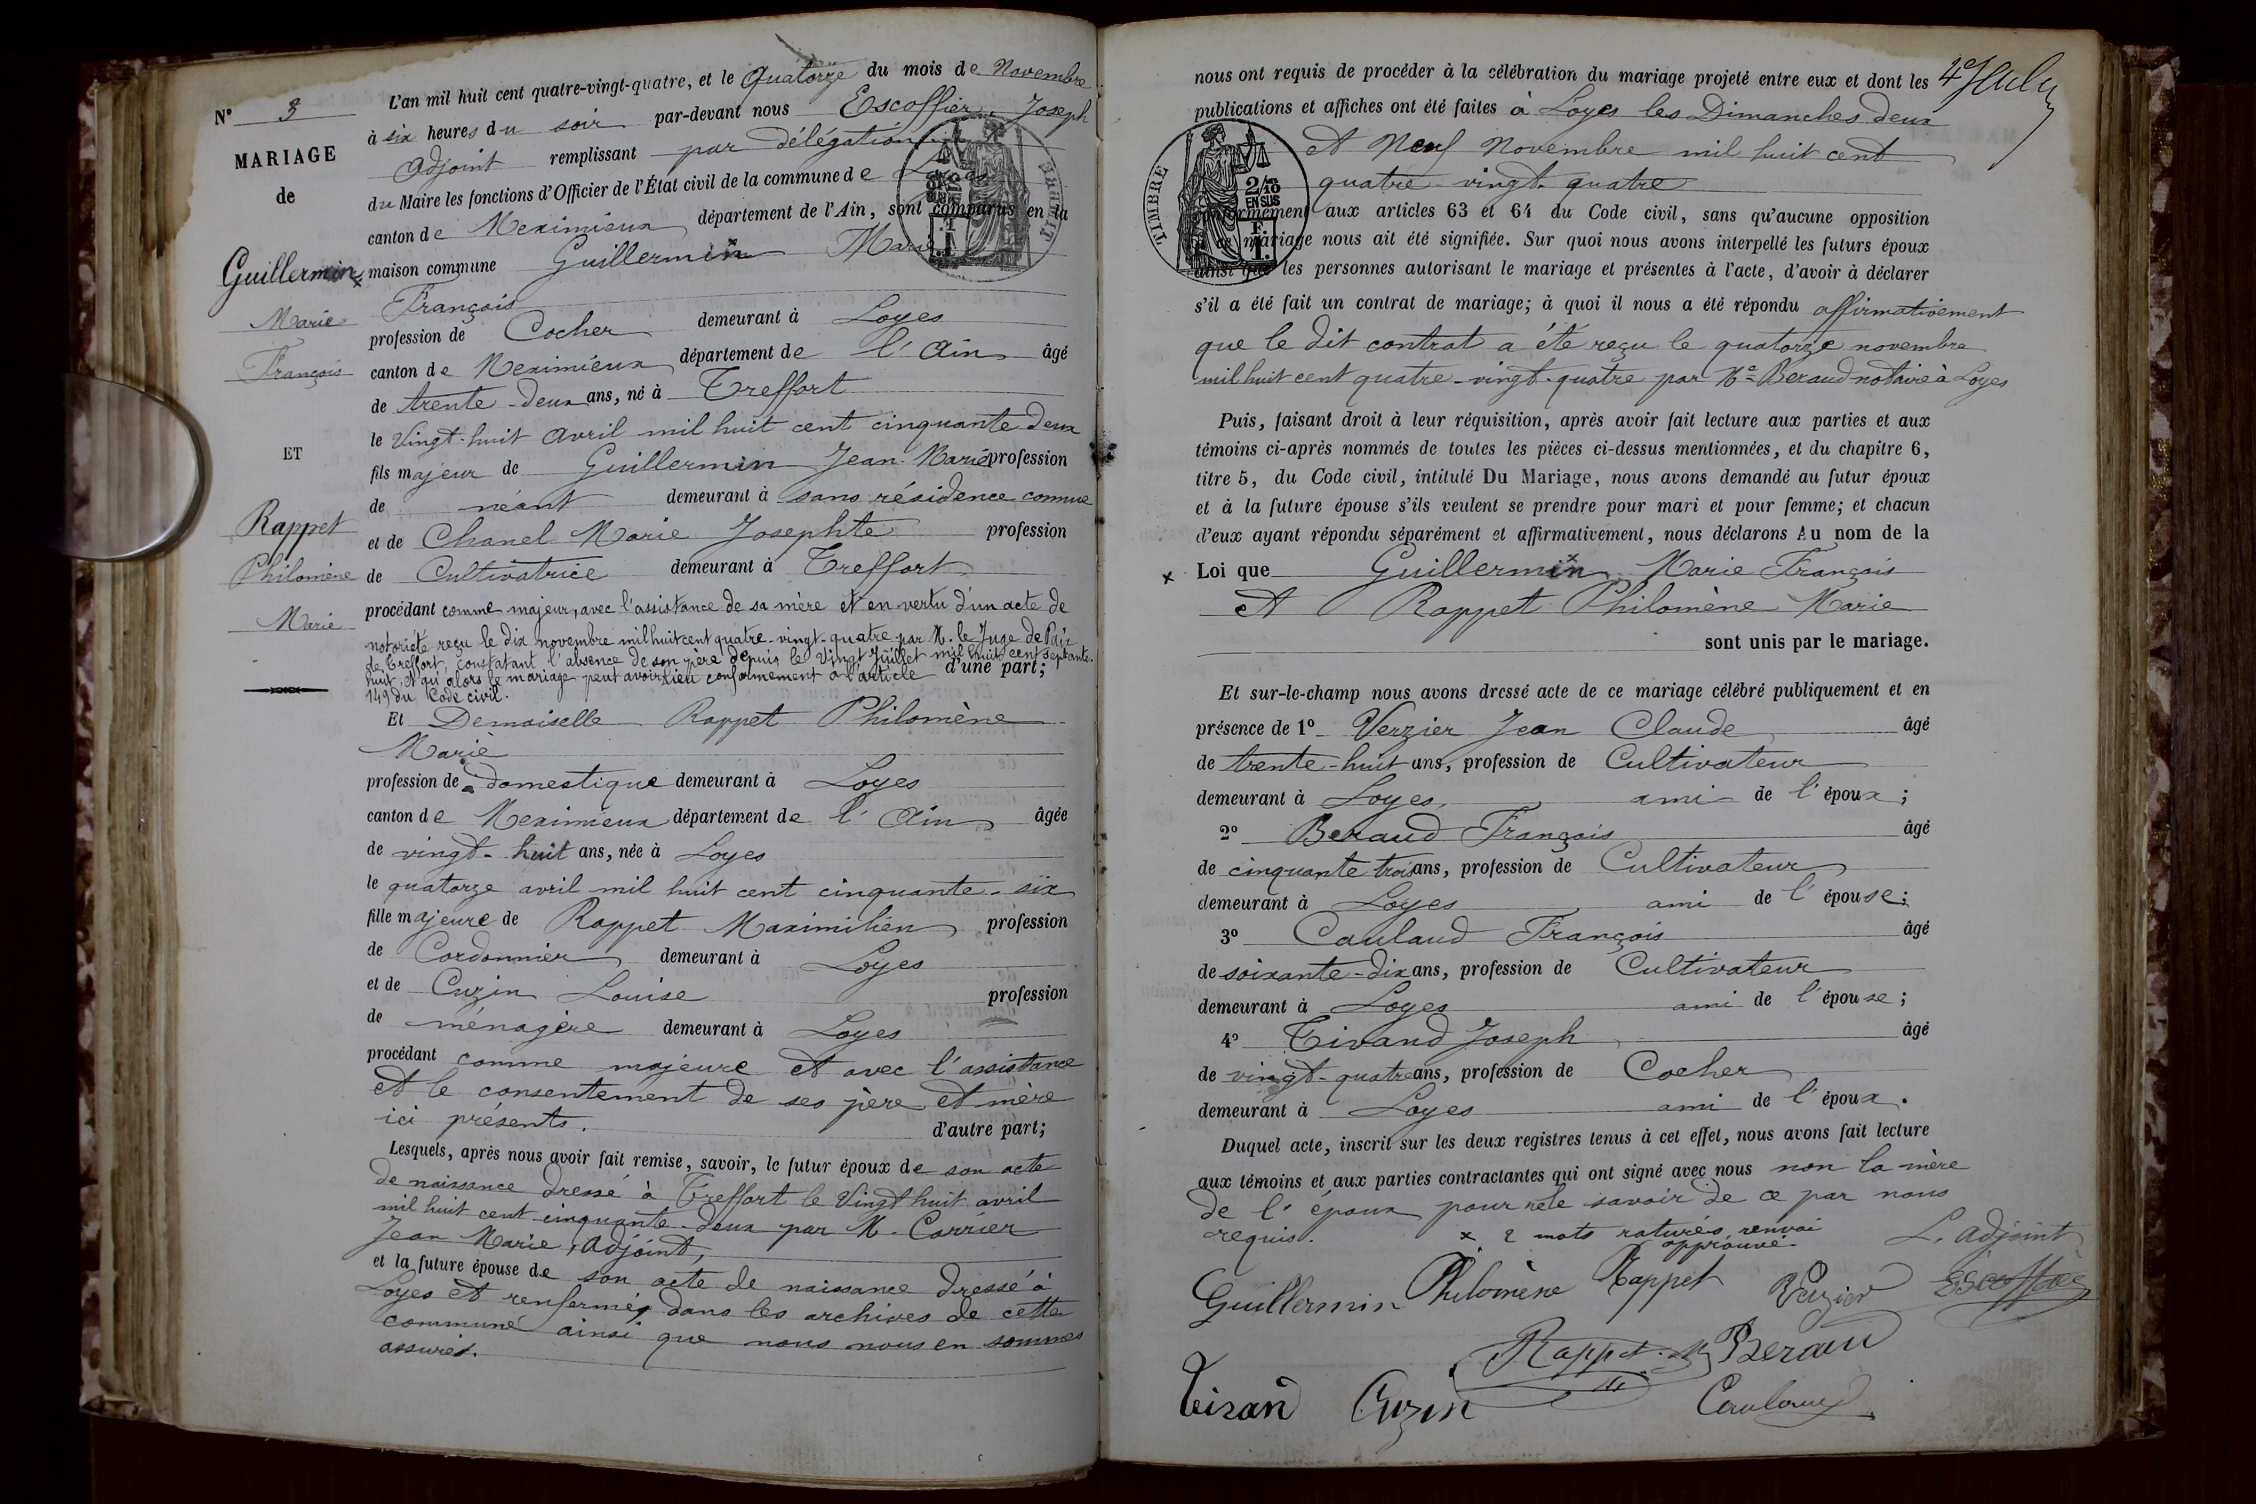 N° 3
MARIAGE
de
Guillermin
Marie
François
ET
Rappet
Philomène
Marie
L'an mil huit cent quatre-vingt-quatre, et le Quatorze du mois de Novembre
à six heures du soir par-devant nous Escoffier Joseph
Adjoint remplissant par délégation
du Maire les fonctions d'Officier de l'État civil de la commune de Loyes
canton de Meximieux département de l'Ain, sont comparus en la
maison commune Guillermin Marie
François
profession de Cocher demeurant à Loyes
canton de Meximieux département de l'Ain âgé
de trente-deux ans, né à Treffort
le Vingt-huit Avril mil huit cent cinquante deux
fils majeur de Guillermin Jean-Marie profession
de néant demeurant à sans résidence connue
et de Chanel Marie Josephte profession
de Cultivatrice demeurant à Treffort
procédant comme majeur, avec l'assistance de sa mère et en vertu d'un acte de
notoriété reçu le dix novembre mil huit cent quatre-vingt-quatre par M. le Juge de Paix
de Treffort, constatant l'absence de son père depuis le Vingt Juillet mil huit cent septante-
huit, et qu'alors le mariage peut avoir lieu conformément à l'article d'une part;
149 du Code civil.
Et Demoiselle Rappet Philomène
Marie
profession de domestique demeurant à Loyes
canton de Meximieux département de l'Ain âgée
de vingt-huit ans, née à Loyes
le quatorze avril mil huit cent cinquante-six
fille majeure de Rappet Maximilien profession
de Cordonnier demeurant à Loyes
et de Cuzin Louise profession
de ménagère demeurant à Loyes
procédant comme majeure et avec l'assistance
et le consentement de ses père et mère
ici présents. d'autre part;
Lesquels, après nous avoir fait remise, savoir, le futur époux de son acte
de naissance dressé à Treffort le Vingt huit avril
mil huit cent cinquante-deux par M. Carrier
Jean Marie, Adjoint,
et la future épouse de son acte de naissance dressé à
Loyes et renfermé dans les archives de cette
commune ainsi que nous nous en sommes
assurés.
nous ont requis de procéder à la célébration du mariage projeté entre eux et dont les
publications et affiches ont été faites à Loyes les Dimanches deux
et Neuf Novembre mil huit cent
quatre-vingt-quatre
TIMBRE
2/10
EN SUS
1 F.
conformément aux articles 63 et 64 du Code civil, sans qu'aucune opposition
à ce mariage nous ait été signifiée. Sur quoi nous avons interpellé les futurs époux
ainsi que les personnes autorisant le mariage et présentes à l'acte, d'avoir à déclarer
s'il a été fait un contrat de mariage; à quoi il nous a été répondu affirmativement
que le dit contrat a été reçu le quatorze novembre
mil huit cent quatre-vingt-quatre par Me Beraud notaire à Loyes
Puis, faisant droit à leur réquisition, après avoir fait lecture aux parties et aux
témoins ci-après nommés de toutes les pièces ci-dessus mentionnées, et du chapitre 6,
titre 5, du Code civil, intitulé Du Mariage, nous avons demandé au futur époux
et à la future épouse s'ils veulent se prendre pour mari et pour femme; et chacun
d'eux ayant répondu séparément et affirmativement, nous déclarons Au nom de la
x Loi que Guillermin Marie François
et Rappet Philomène Marie
sont unis par le mariage.
Et sur-le-champ nous avons dressé acte de ce mariage célébré publiquement et en
présence de 1° Verzier Jean Claude âgé
de trente-huit ans, profession de Cultivateur
demeurant à Loyes, ami de l'époux;
2° Beraud François âgé
de cinquante trois ans, profession de Cultivateur
demeurant à Loyes ami de l'épouse;
3° Caulaud François âgé
de soixante-dix ans, profession de Cultivateur
demeurant à Loyes ami de l'épouse;
4° Tivand Joseph âgé
de vingt-quatre ans, profession de Cocher
demeurant à Loyes ami de l'époux.
Duquel acte, inscrit sur les deux registres tenus à cet effet, nous avons fait lecture
aux témoins et aux parties contractantes qui ont signé avec nous non la mère
de l'époux pour ne le savoir de ce par nous
requis. x 2 mots raturés, renvoi
approuvé. L'adjoint
Guillermin Philomène Rappet Verzier Escoffier
Rappet M Beraud
Tivand Cuzin Caulaud